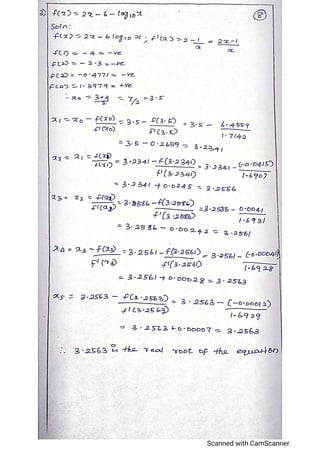 2) f(x) = 2x - 6 - log10 x
8
Soln:
f(x) = 2x - 6 log10 x ; f'(x) = 2 - 1/x = 2x-1/x
f(1) = -4 = -ve
f(2) = -2.3 = -ve
f(3) = -0.4771 = -ve
f(4) = 1.3979 = +ve
∴ x0 = 3+4/2 = 7/2 = 3.5
x1 = x0 - f(x0)/f'(x0) = 3.5 - f(3.5)/f'(3.5) = 3.5 - 0.4559/1.7142
= 3.5 - 0.2659 = 3.2341
x2 = x1 - f(x1)/f'(x1) = 3.2341 - f(3.2341)/f'(3.2341) = 3.2341 - (-0.0415)/1.6907
= 3.2341 + 0.0245 = 3.2586
x3 = x2 - f(x2)/f'(x2) = 3.2586 - f(3.2586)/f'(3.2586) = 3.2586 - 0.0041/1.6931
= 3.2586 - 0.00242 = 3.2561
x4 = x3 - f(x3)/f'(x3) = 3.2561 - f(3.2561)/f'(3.2561) = 3.2561 - (-0.00049)/1.6928
= 3.2561 + 0.00028 = 3.2563
x5 = 3.2563 - f(3.2563)/f'(3.2563) = 3.2563 - (-0.00012)/1.6929
= 3.2563 + 0.00007 = 3.2563
∴ 3.2563 is the real root of the equation
Scanned with CamScanner